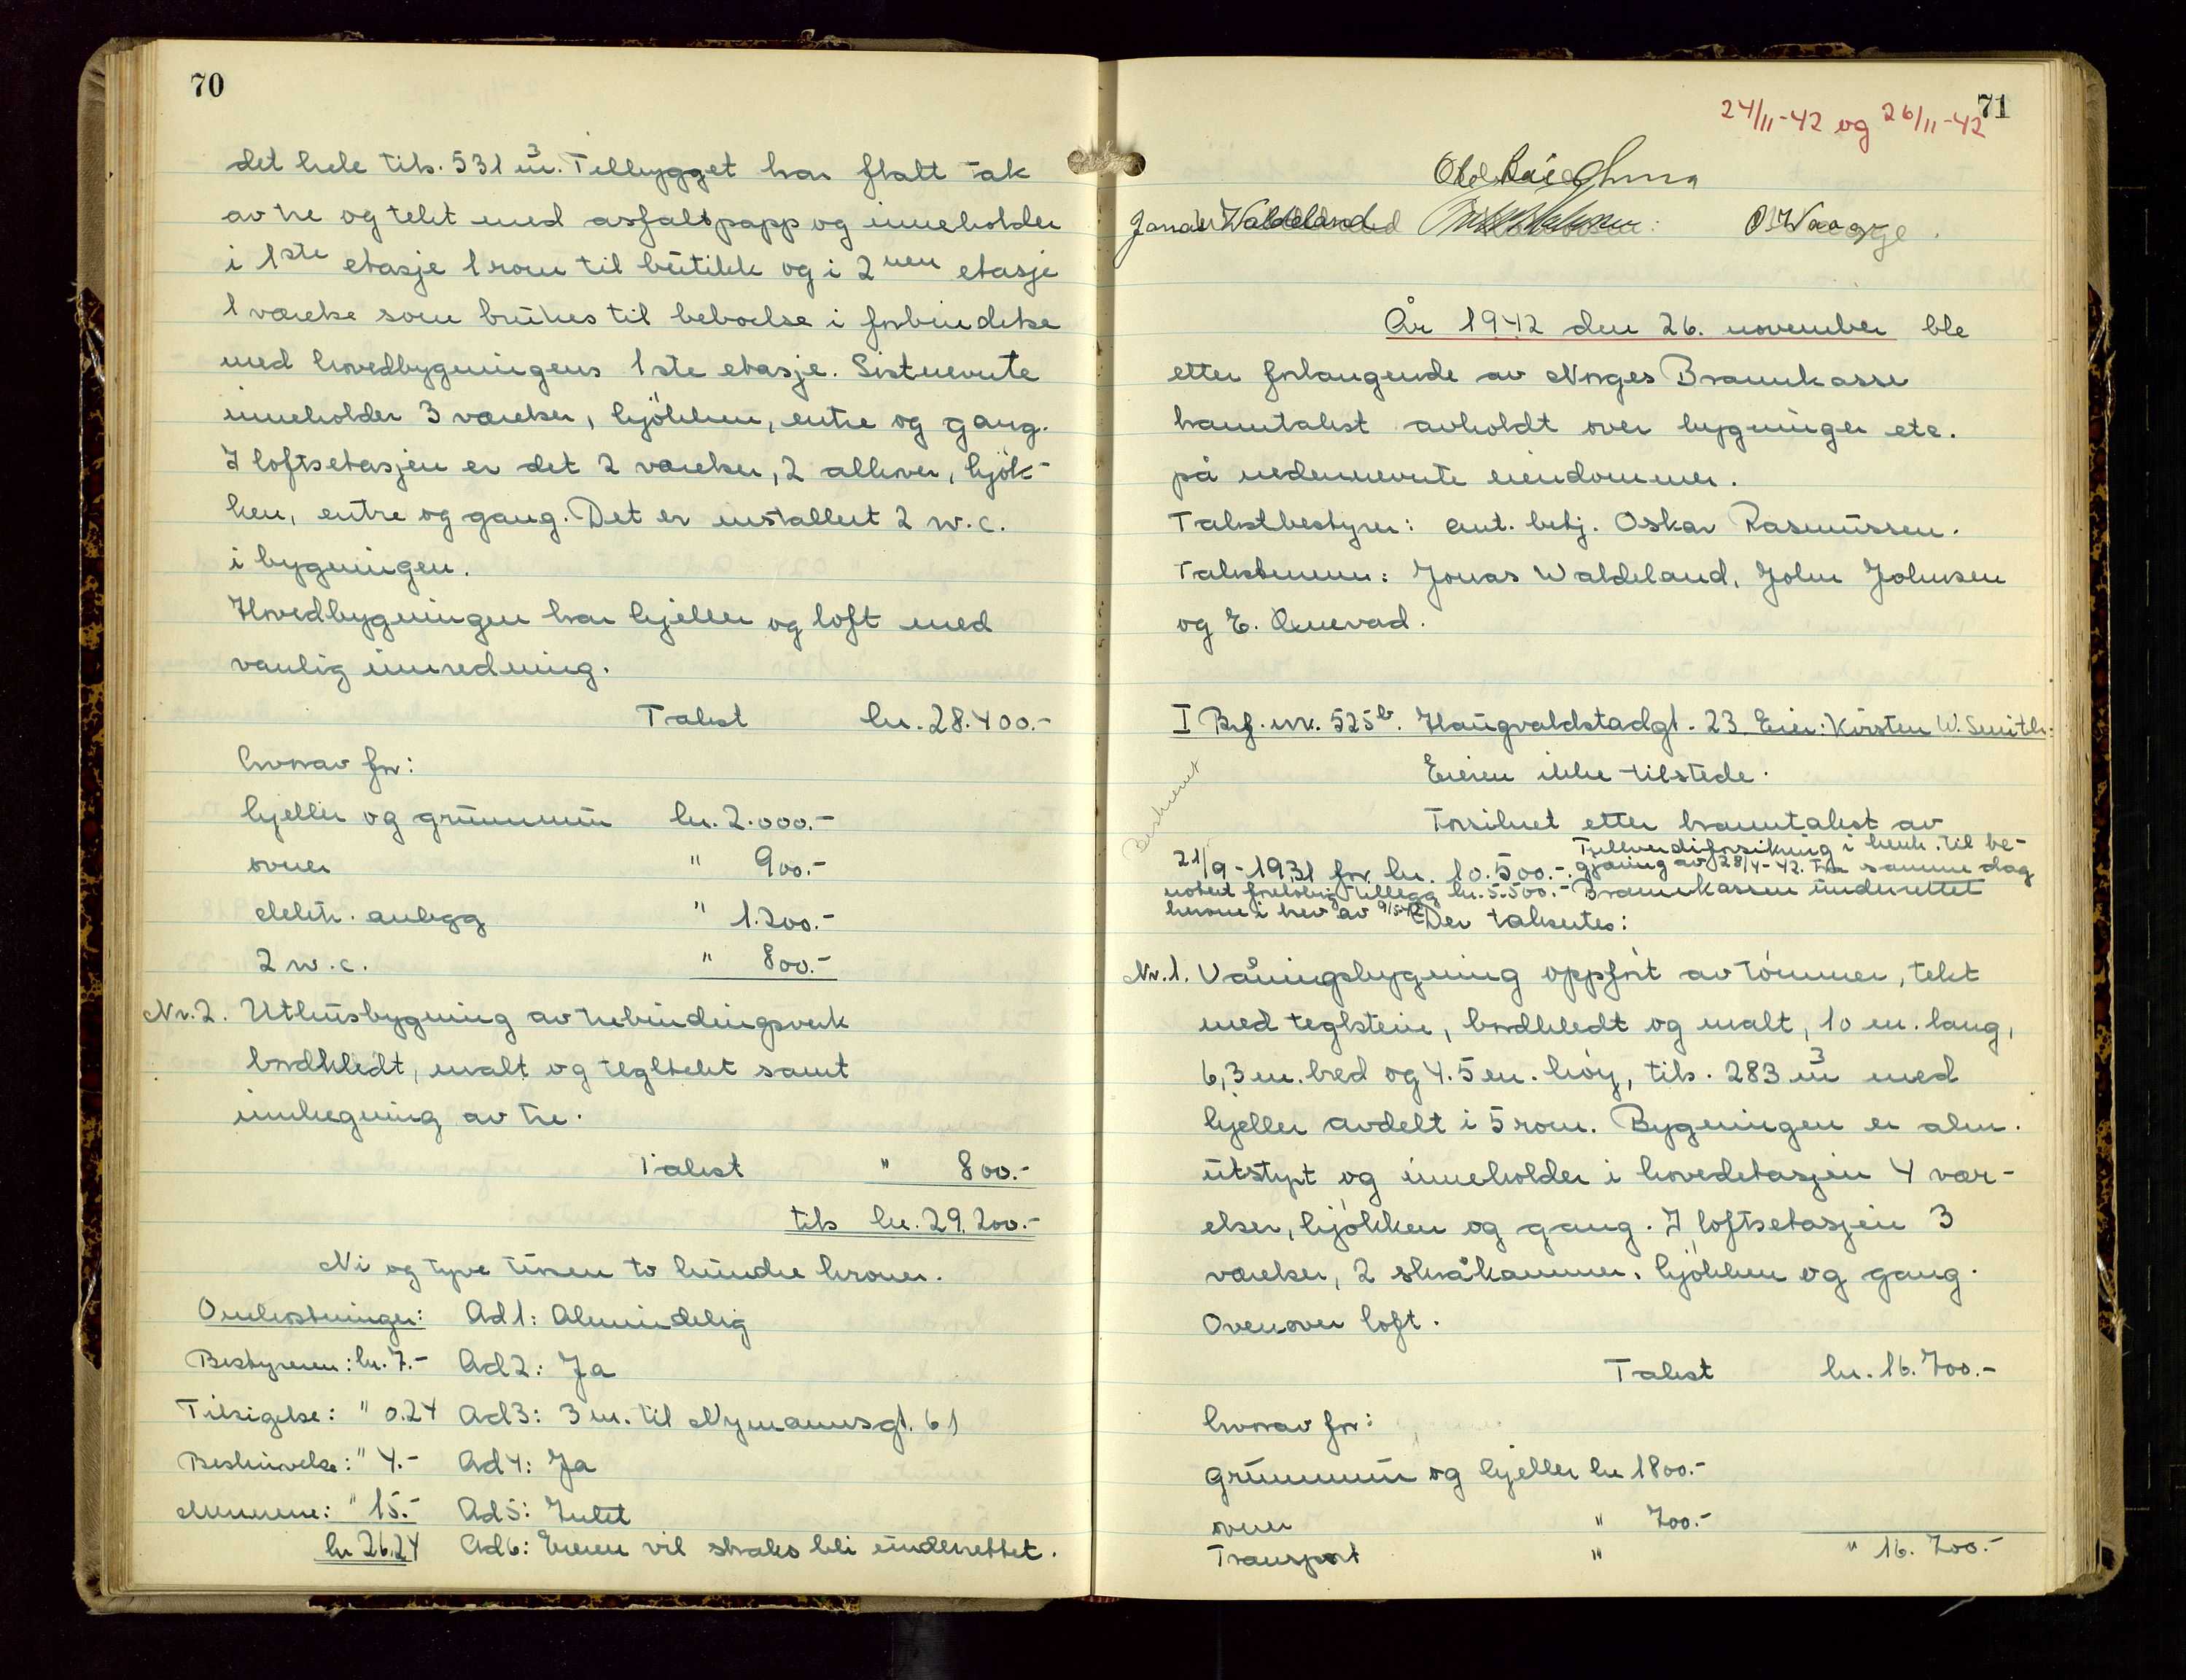 70
det hele tils. 531 m³. Tilbygget har flatt tak
av tre og tekt med asfaltpapp og inneholder
i 1ste etasje 1 rom til butikk og i 2nen etasje
1 værelse som brukes til beboelse i forbindelse
med hovedbygningens 1ste etasje. Sistnevnte
inneholder 3 værelser, kjökken, entre og gang.
I loftsetasjen er det 2 værelser, 2 alkover, kjök-
ken, entre og gang. Det er installert 2 w.c.
i bygningen.
Hovedbygningen har kjeller og loft med
vanlig innredning.
Takst kr. 28.400.-
hvorav for:
kjeller og grunnmur kr. 2.000.-
ovner " 900.-
elektr. anlegg " 1.200.-
2 w.c. " 800.-
Nr. 2. Uthusbygning av trebindingsverk
bordkledt, malt og tegltekt samt
innhegning av tre.
Takst " 800.-
tils kr. 29.200.-
Ni og tyve tusen to hundre kroner.
Omkostninger: Ad 1: Almindelig
Bestyreren: kr. 7.- Ad 2: Ja
Tilsigelse: " 0.24 Ad 3: 3 m. til Nymannsgt. 61
Beskrivelse: " 4.- Ad 4: Ja
Mennene: " 15.- Ad 5: Intet
kr 26.24 Ad 6: Eieren vil straks bli underrettet.
71
24/11-42 og 26/11-42
Jonas Waldeland O. Waage
År 1942 den 26. november ble
etter forlangende av Norges Brannkasse
branntakst avholdt over bygninger etc.
på nedennevnte eiendommer.
Takstbestyrer: ant. betj. Oskar Rasmussen.
Takstmenn: Jonas Waldeland, John Johnsen
og E. Quevad.
I Brf. nr. 525b. Haugvaldstadgt. 23. Eier: Kirsten W. Smith:
Eieren ikke tilstede.
Beskrevet
Forsikret etter branntakst av
Fullverdiforsikring i henh. til be-
21/9-1931 for kr. 10.500.-. gjæring av 28/4-42. Fra samme dag
notert foreløbig tillegg kr. 5.500.- Brannkassen underrettet
herom i brev av 9/5-42 Der taksertes:
Nr. 1. Våningsbygning oppfört av tömmer, tekt
med teglstein, bordkledt og malt, 10 m. lang,
6,3 m. bred og 4.5 m. höy, tils. 283 m³ med
kjeller avdelt i 5 rom. Bygningen er alm.
utstyrt og inneholder i hovedetasjen 4 vær-
elser, kjökken og gang. I loftsetasjen 3
værelser, 2 skråkammer, kjökken og gang.
Ovenover loft.
Takst kr. 16.700.-
hvorav for:
grunnmur og kjeller kr 1800.-
ovner " 700.-
Transport " " 16.700.-